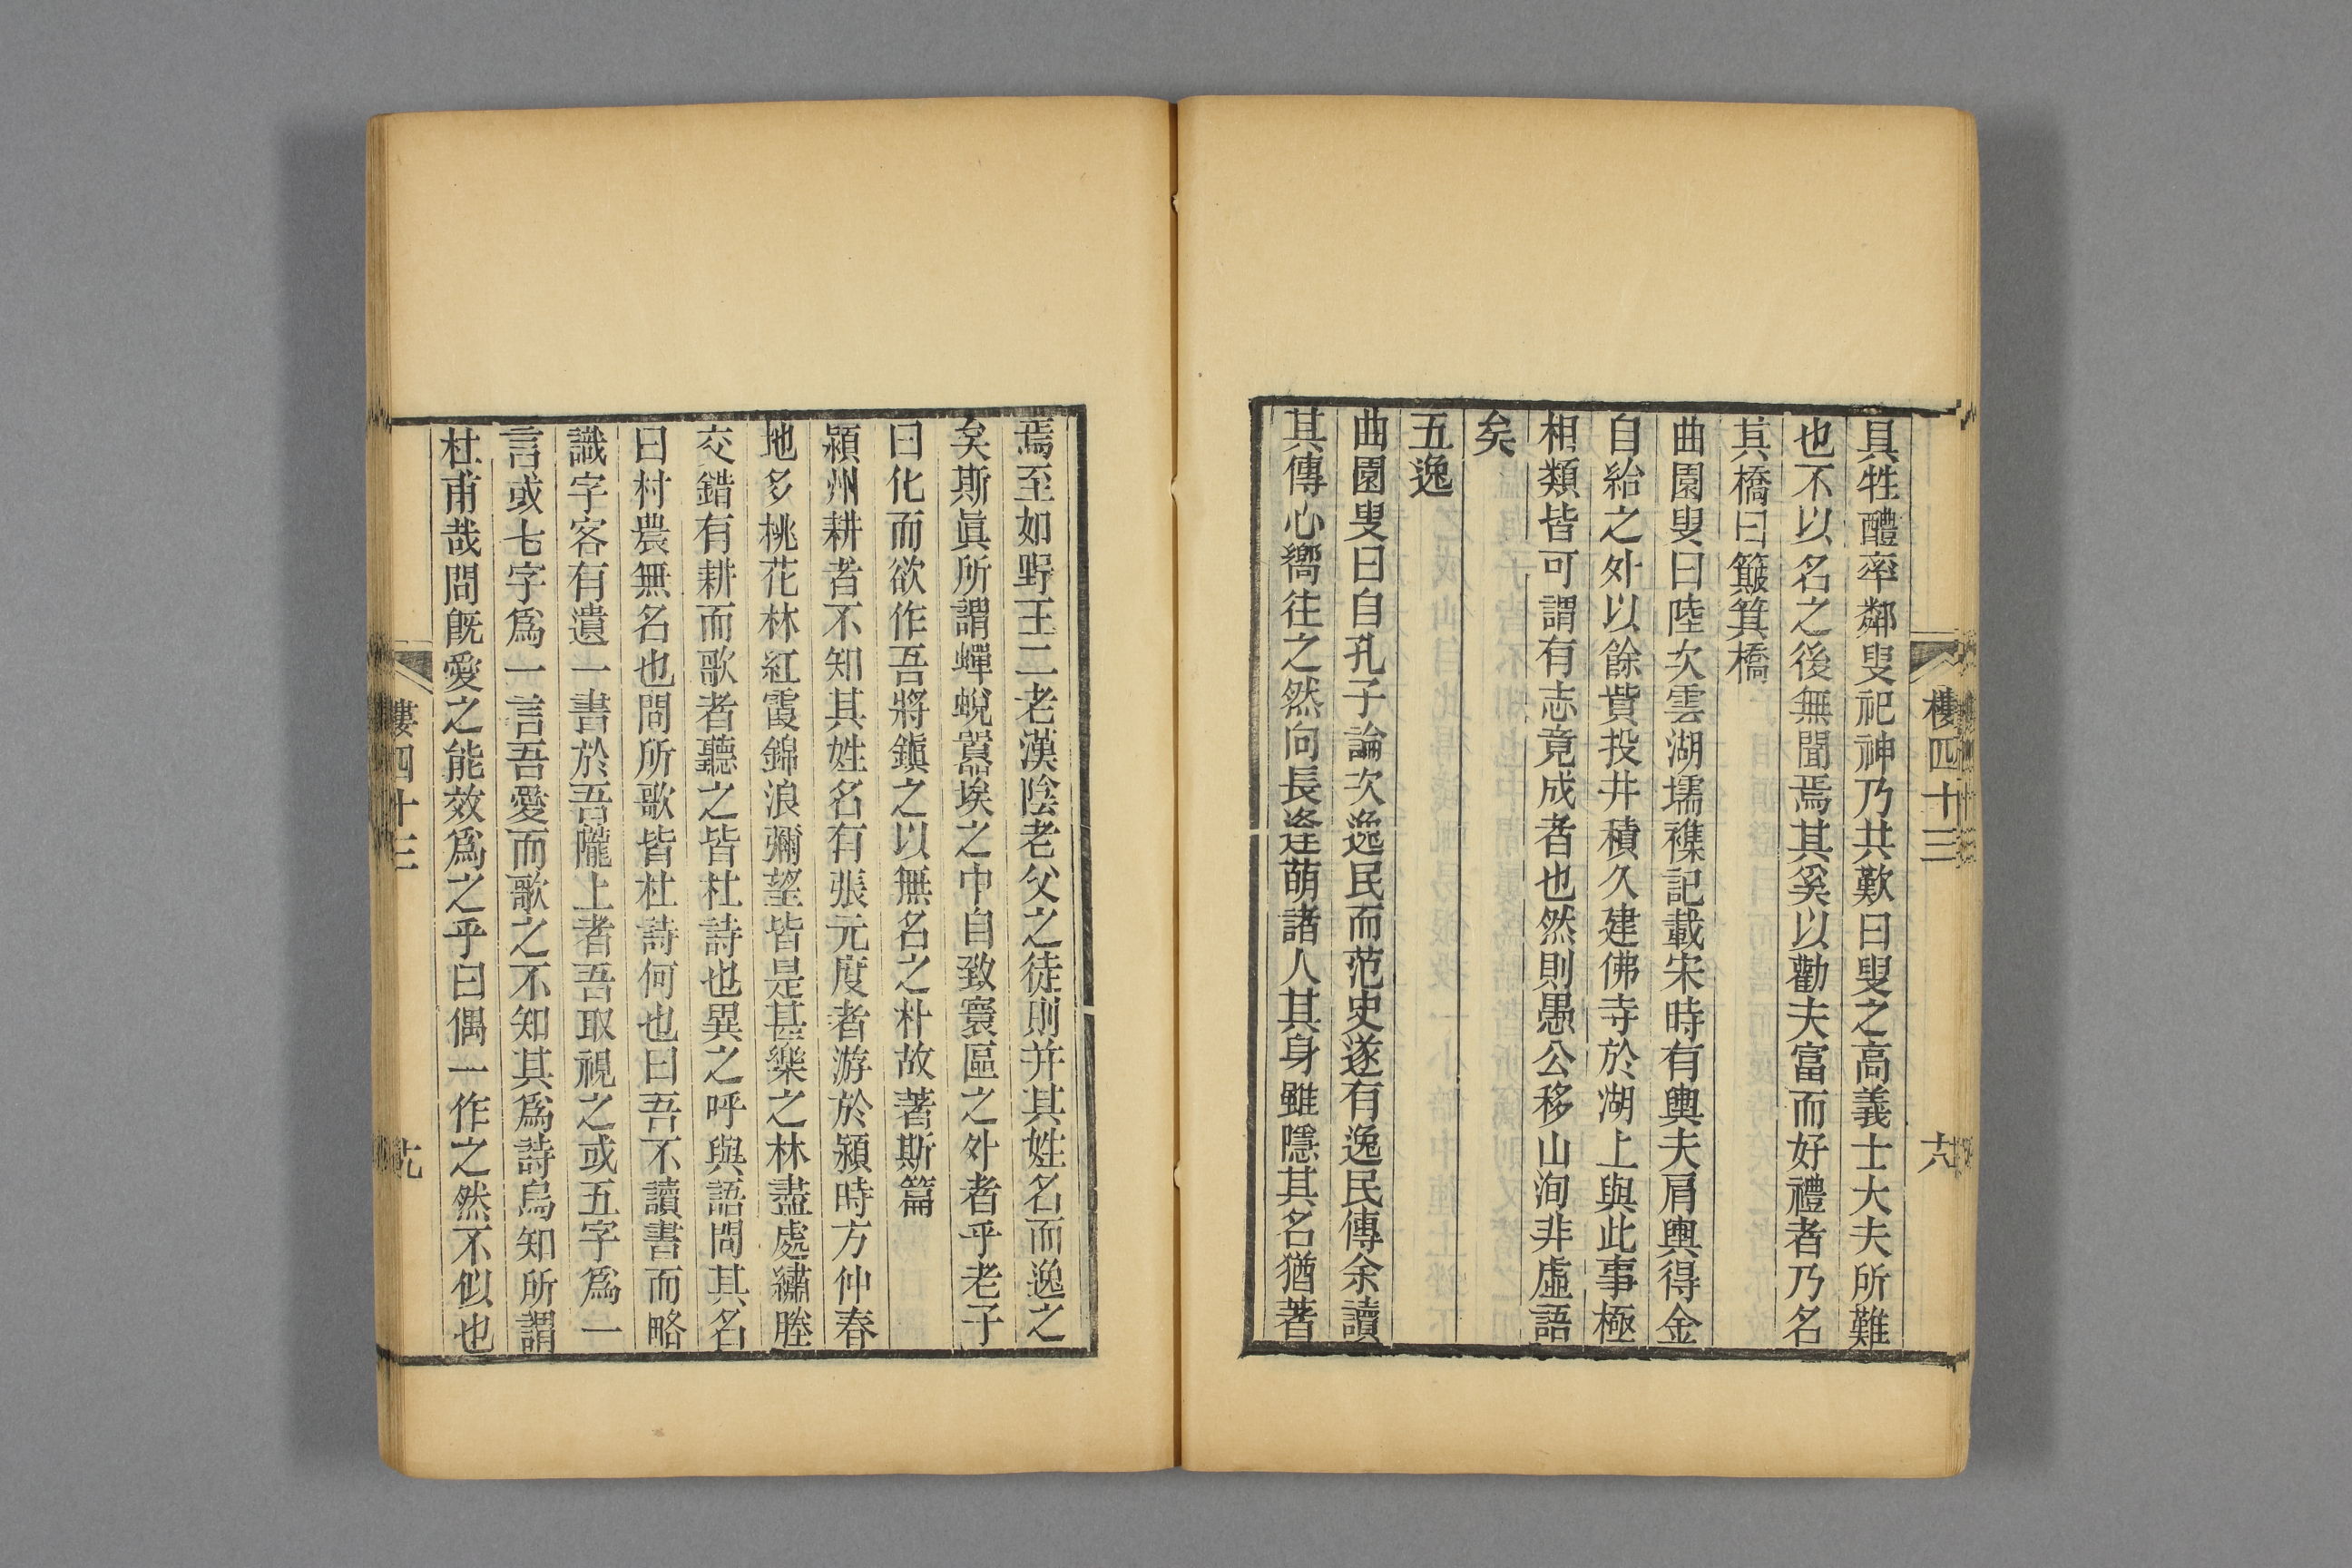 樓四十三
六
具牲醴率鄰叟祀神乃共歎曰叟之高義士大夫所難
也不以名之後無聞焉其奚以勸夫富而好禮者乃名
其橋曰簸箕橋
曲園叟曰陸次雲湖壖襍記載宋時有輿夫肩輿得金
自給之外以餘貲投井積久建佛寺於湖上與此事極
相類皆可謂有志竟成者也然則愚公移山洵非虛語
矣
五逸
曲園叟曰自孔子論次逸民而范史遂有逸民傳余讀
其傳心嚮往之然向長逄萌諸人其身雖隱其名猶著
焉至如野王二老漢陰老父之徒則并其姓名而逸之
矣斯眞所謂蟬蛻囂埃之中自致寰區之外者乎老子
曰化而欲作吾將鎭之以無名之朴故著斯篇
潁州耕者不知其姓名有張元度者游於潁時方仲春
地多桃花林紅霞錦浪彌望皆是甚樂之林盡處繡塍
交錯有耕而歌者聽之皆杜詩也異之呼與語問其名
曰村農無名也問所歌皆杜詩何也曰吾不讀書而略
識字客有遺一書於吾隴上者吾取視之或五字爲一
言或七字爲一言吾愛而歌之不知其爲詩烏知所謂
杜甫哉問旣愛之能效爲之乎曰偶一作之然不似也
樓四十三